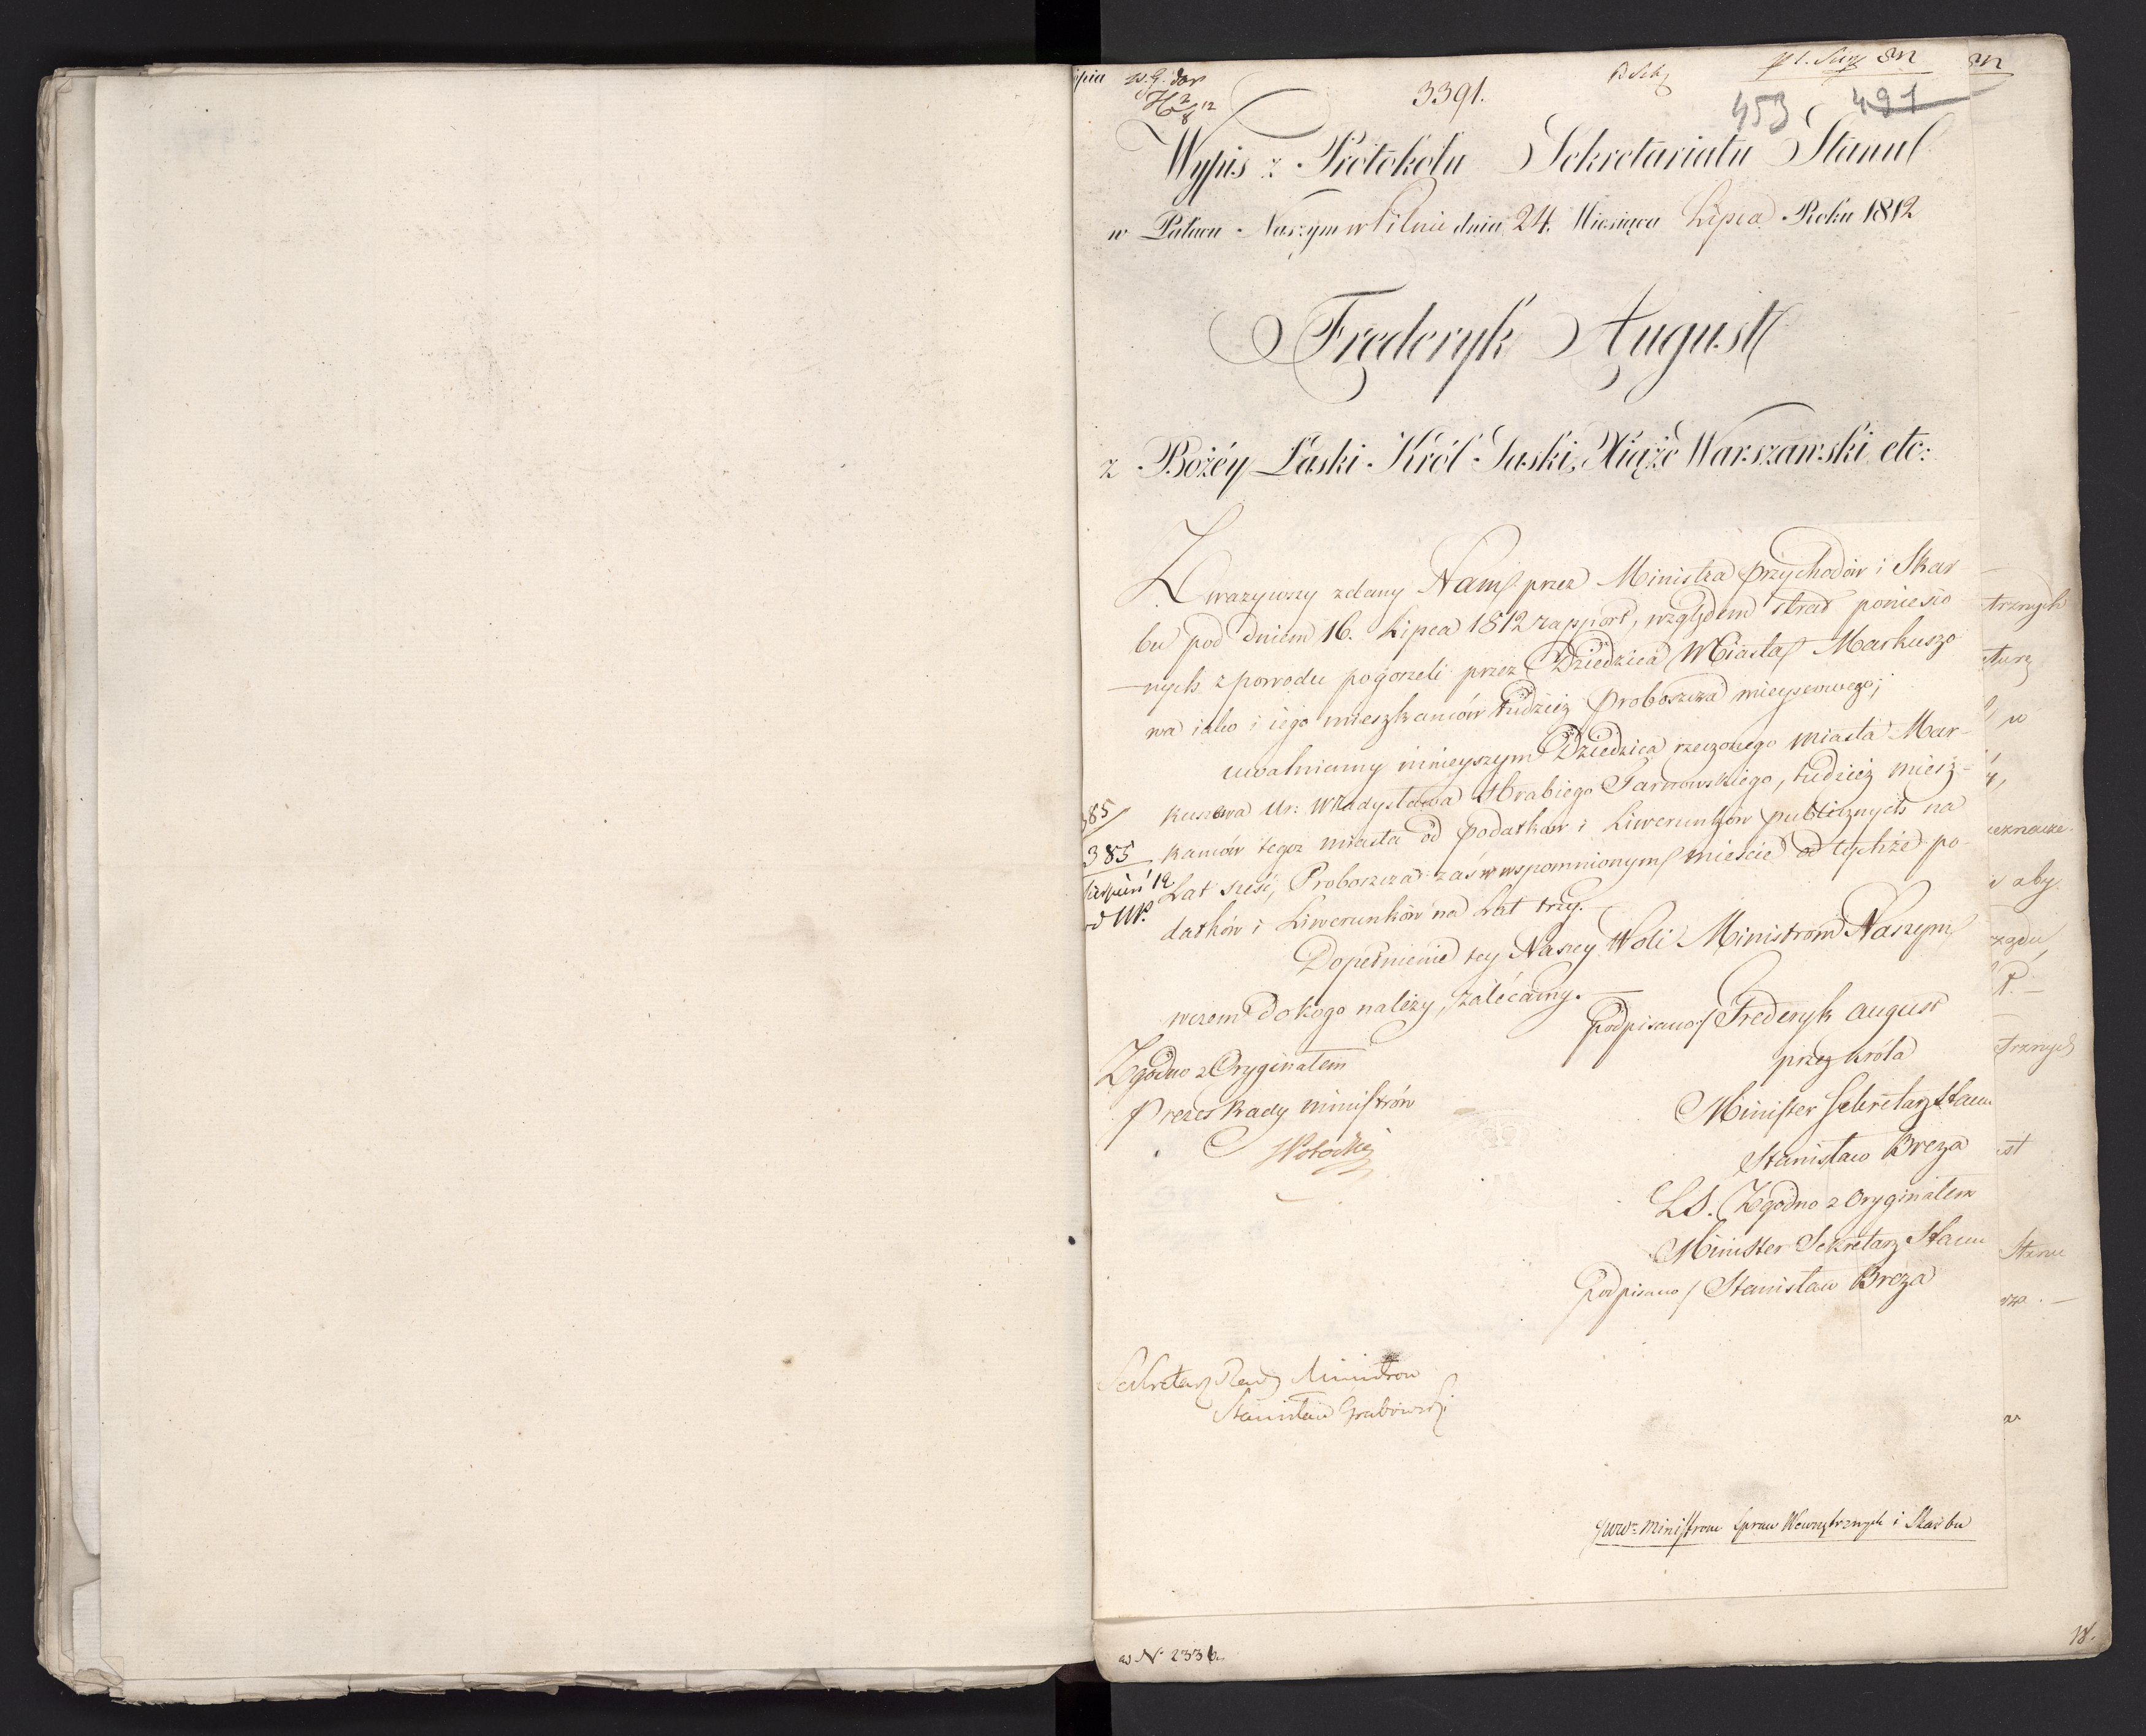 3391.
453 491
Wypis z Protokołu Sekretariatu Stanu
w Pałacu Naszym w Pilnic dnia 24. Miesiąca Lipca Roku 1812
Fryderyk August
z Bożéy Łaski Król Saski, Xiąże Warszawski, etc:
Zważywszy zdany Nam przez Ministra Przychodów i Skar
bu pod dniem 16. Lipca 1812 rapport, względem strat poniesio
nych z powodu pogorzeli przez Dziedzica Miasta Markuszo
wa iako i iego mieszkańców tudzież Proboszcza mieyscowego;
uwalniamy ninieyszym Dziedzica rzeczonego miasta Mar-
kuszowa Ur: Władysława Hrabiego Tarnowskiego, tudzież miesz-
kańców tegoż miasta od podatków i Liwerunków publicznych na
Lat sześć, Proboszcza zaś w wspomnionym mieście od tychże po-
datków i Liwerunków na Lat trzy.
385
Dopełnienie tey Naszey Woli Ministrom Naszym
w czem do kogo należy, zalécamy.
podpisano/ Fryderyk August
przez Króla
Minister Sekretarz Stanu
Stanisław Breza
LS. Zgodno z Oryginałem
Minister Sekretarz Stanu
podpisano/ Stanisław Breza
Zgodno z Oryginałem
Prezes Rady Ministrów
Sekretarz Rady Ministrow
Stanisław Grabowski
JWW= Ministrom Spraw Wewnętrznych i Skarbu
ad N 2336